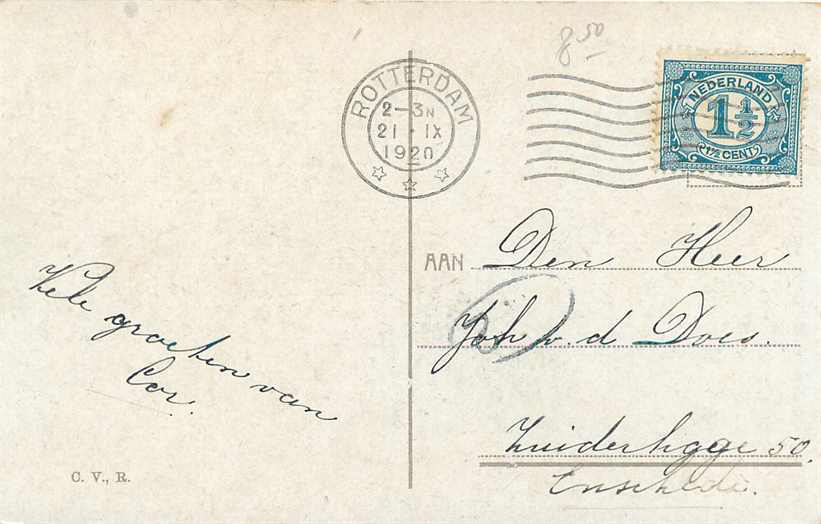 8 50
ROTTERDAM
2-3N
21 · IX
1920
NEDERLAND
1 1/2
1 1/2 CENT
Vele groeten van
Cor.
AAN Den Heer
Joh v. d Does.
50.
Enschede.
C. V., R.